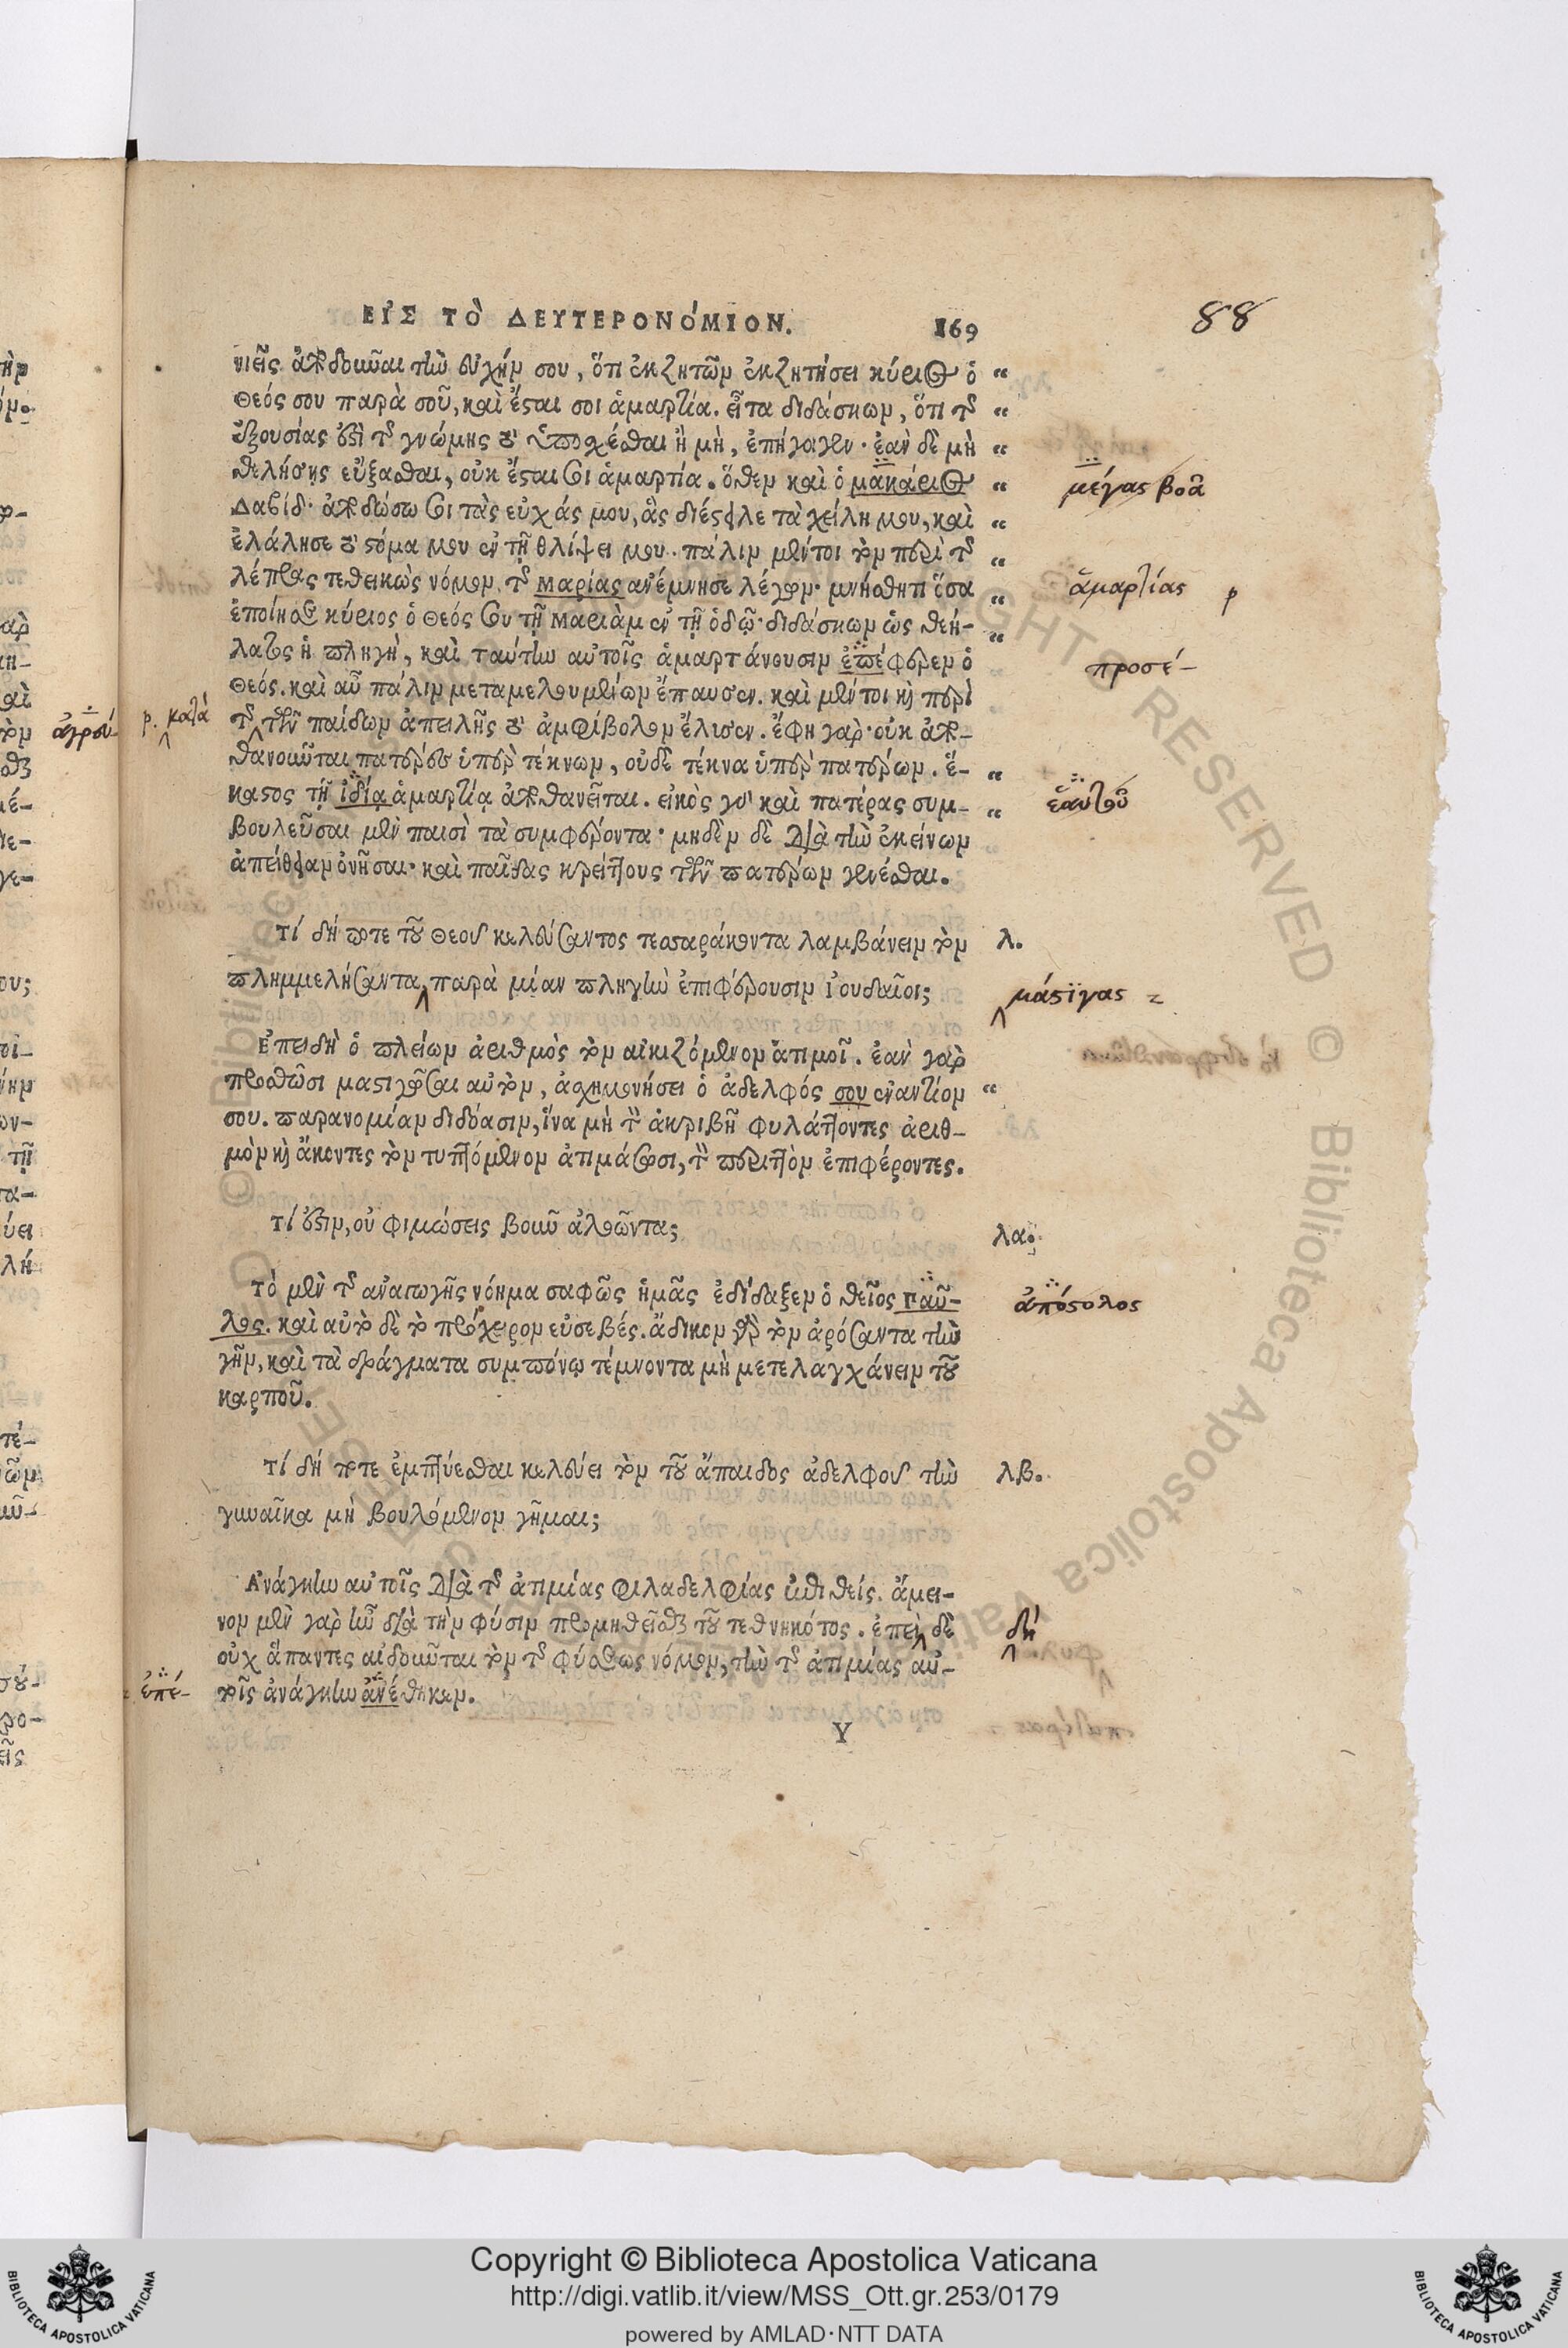 ΕἸΣ ΤῸ ΔΕΥΤΕΡΟΝΌΜΙΟΝ.
169
88
νιεῖς ἀποδοῦναι τὴν εὐχήν σου, ὅτι ἐκζητῶν ἐκζητήσει κύριος ὁ “
Θεός σου παρὰ σοῦ, καὶ ἔσται σοι ἁμαρτία. εἶτα διδάσκων, ὅτι τῆς “
ἐξουσίας ἐστὶ τῆς γνώμης τὸ ὑποσχέσθαι ἢ μὴ, ἐπήγαγεν· ἐὰν δὲ μὴ “
θελήσῃς εὔξασθαι, οὐκ ἔσται σοι ἁμαρτία. ὅθεν καὶ ὁ μακάριος “
μέγας βοᾶ
Δαβίδ· ἀποδώσω σοι τὰς εὐχάς μου, ἃς διέστειλε τὰ χείλη μου, καὶ “
ἐλάλησε τὸ στόμα μου ἐν τῇ θλίψει μου. πάλιν μέντοι τὸν περὶ τῆς “
λέπρας τεθεικὼς νόμον, τῆς Μαρίας ἀνέμνησε λέγων· μνήσθητι ὅσα “
ἁμαρτίας ρ
ἐποίησε κύριος ὁ Θεός σου τῇ Μαριὰμ ἐν τῇ ὁδῷ· διδάσκων ὡς θεή- “
λατος ἡ πληγὴ, καὶ ταύτην αὐτοῖς ἁμαρτάνουσιν ἐπέφερεν ὁ
προσέ-
Θεός. καὶ αὖ πάλιν μεταμελουμένων ἔπαυσεν. καὶ μέντοι καὶ περὶ
ρ. κατὰ
τῆς τῶν παίδων ἀπειλῆς τὸ ἀμφίβολον ἔλυσεν. ἔφη γὰρ· οὐκ ἀπο-
θανοῦνται πατέρες ὑπὲρ τέκνων, οὐδὲ τέκνα ὑπὲρ πατέρων. ἕ- “
καστος τῇ ἰδίᾳ ἁμαρτίᾳ ἀποθανεῖται. εἰκὸς γὰρ καὶ πατέρας συμ- “
ἑαυτοῦ
βουλεῦσαι μὲν παισὶ τὰ συμφέροντα· μηδὲν δὲ διὰ τὴν ἐκείνων
ἀπείθειαν ὀνῆσαι· καὶ παῖδας κρείττους τῶν πατέρων γενέσθαι.
Τί δή ποτε τοῦ Θεοῦ κελεύσαντος τεσσαράκοντα λαμβάνειν τὸν λ.
πλημμελήσαντα, παρὰ μίαν πληγὴν ἐπιφέρουσιν ἰουδαῖοι;
μάστιγας
Ἐπειδὴ ὁ πλείων ἀριθμὸς τὸν αἰκιζόμενον ἀτιμοῖ. ἐὰν γὰρ
προσθῶσι μαστιγῶσαι αὐτὸν, ἀσχημονήσει ὁ ἀδελφός σου ἐναντίον “
σου. παρανομίαν διδόασιν, ἵνα μὴ τὸν ἀκριβῆ φυλάττοντες ἀριθ-
μὸν καὶ ἄκοντες τὸν τυπτόμενον ἀτιμάσωσι, τὸν περιττὸν ἐπιφέροντες.
Τί ἐστιν, οὐ φιμώσεις βοῦν ἀλοῶντα; λα.
Τὸ μὲν τῆς ἀναγωγῆς νόημα σαφῶς ἡμᾶς ἐδίδαξεν ὁ θεῖος Παῦ-
ἀπόστολος
λος. καὶ αὐτὸ δὲ τὸ πρόχειρον εὐσεβές. ἄδικον γὰρ τὸν ἀρόσαντα τὴν
γῆν, καὶ τὰ δράγματα συμπόνῳ τέμνοντα μὴ μεταλαγχάνειν τοῦ
καρποῦ.
Τί δή ποτε ἐμπτύεσθαι κελεύει τὸν τοῦ ἄπαιδος ἀδελφοῦ τὴν λβ.
γυναῖκα μὴ βουλόμενον γῆμαι;
Ἀνάγκην αὐτοῖς διὰ τῆς ἀτιμίας φιλαδελφίας ἐπιθείς. ἄμει-
νον μὲν γὰρ ἦν διὰ τὴν φύσιν προμηθεῖσθαι τοῦ τεθνηκότος. ἐπεὶ δὲ
δὴ
οὐχ ἅπαντες αἰδοῦνται τὸν τῆς φύσεως νόμον, τὴν τῆς ἀτιμίας αὐ-
ἐπέ-
τοῖς ἀνάγκην ἀνέθηκεν.
Y
ἀγροῦ-
Copyright © Biblioteca Apostolica Vaticana
http://digi.vatlib.it/view/MSS_Ott.gr.253/0179
powered by AMLAD·NTT DATA
BIBLIOTECA APOSTOLICA VATICANA
BIBLIOTECA APOSTOLICA VATICANA